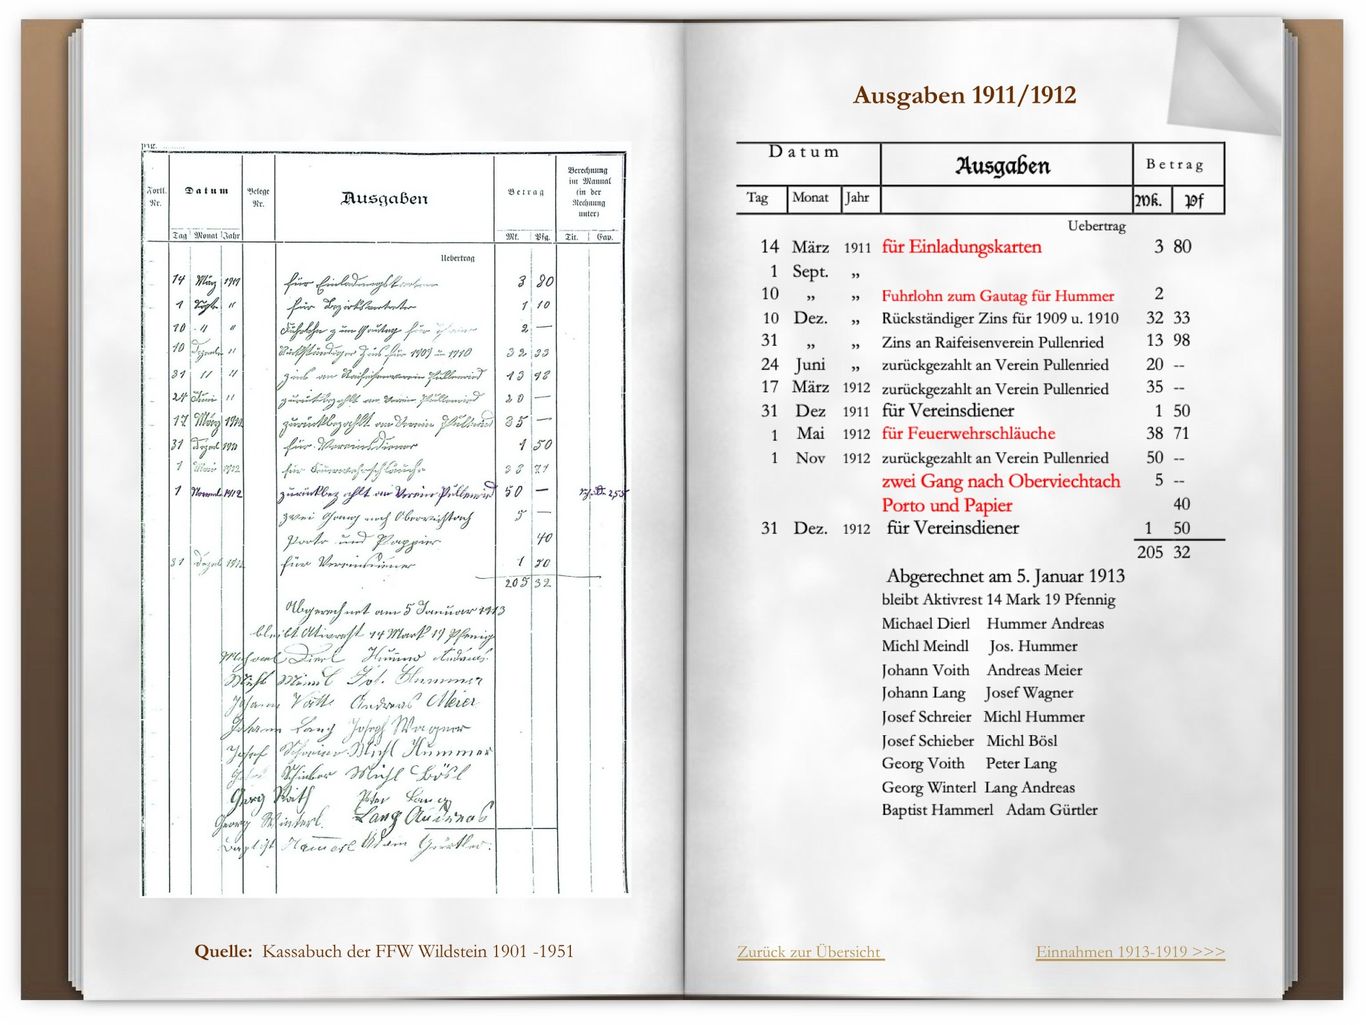 Fortl. Nr.
Datum
Belege Nr.
Ausgaben
Betrag
Berechnung im Manual (in der Rechnung unter)
Tag Monat Jahr Mk. Pfg. Tit. Cap.
Uebertrag
14 März 1911 für Einladungskarten 3 80
1 Sept. " für 1 10
10 " " Fuhrlohn zum Gautag für 2 —
10 Dezemb. " Rückständiger Zins für 1909 u 1910 32 33
31 " " Zins an Raiffeisenverein Pullenried 13 98
24 Juni " zurückbezahlt an Verein Pullenried 20 —
17 März 1912 zurückbezahlt an Verein Pullenried 35 —
31 Dezb. 1911 für Vereinsdiener 1 50
1 Mai 1912 für Feuerwehrschläuche 38 71
1 Novemb 1912 zurückbezahlt an Verein Pullenried 50 —
zwei Gang nach Oberviechtach 5 —
Porto und Pappier 40
31 Dezb. 1912 für Vereinsdiener 1 50
205 32
Abgerechnet am 5 Januar 1913
bleibt Aktivrest 14 Mark 19 Pfenig
Michael Dierl Hummer Andreas
Michl Meindl Jos. Hummer
Johann Voith Andreas Meier
Johann Lang Joseph Wagner
Josef Schreier Michl Hummer
Josef Schieber Michl Bösl
Georg Voith Peter Lang
Georg Winterl. Lang Andreas
Baptist Hammerl Adam Gürtler.
Quelle: Kassabuch der FFW Wildstein 1901 -1951
Ausgaben 1911/1912
Datum Ausgaben Betrag
Tag Monat Jahr Mk. Pf
Uebertrag
14 März 1911 für Einladungskarten 3 80
1 Sept. „
10 „ „ Fuhrlohn zum Gautag für Hummer 2
10 Dez. „ Rückständiger Zins für 1909 u. 1910 32 33
31 „ „ Zins an Raifeisenverein Pullenried 13 98
24 Juni „ zurückgezahlt an Verein Pullenried 20 --
17 März 1912 zurückgezahlt an Verein Pullenried 35 --
31 Dez 1911 für Vereinsdiener 1 50
1 Mai 1912 für Feuerwehrschläuche 38 71
1 Nov 1912 zurückgezahlt an Verein Pullenried 50 --
zwei Gang nach Oberviechtach 5 --
Porto und Papier 40
31 Dez. 1912 für Vereinsdiener 1 50
205 32
Abgerechnet am 5. Januar 1913
bleibt Aktivrest 14 Mark 19 Pfennig
Michael Dierl Hummer Andreas
Michl Meindl Jos. Hummer
Johann Voith Andreas Meier
Johann Lang Josef Wagner
Josef Schreier Michl Hummer
Josef Schieber Michl Bösl
Georg Voith Peter Lang
Georg Winterl Lang Andreas
Baptist Hammerl Adam Gürtler
Zurück zur Übersicht
Einnahmen 1913-1919 >>>